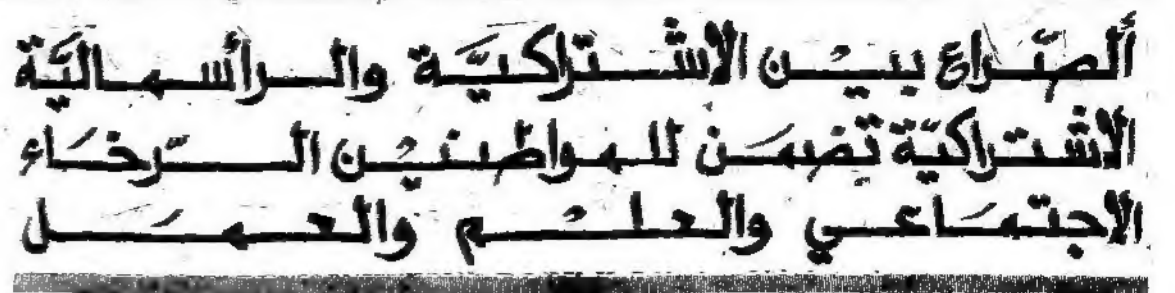 ألصّراع بيْن الاشتراكيَّة والرأسماليَّة
الاشتراكيَّة تضمَن للمواطنيْن الرّخَاء
الاجتمَاعي والعلْم والعمَل